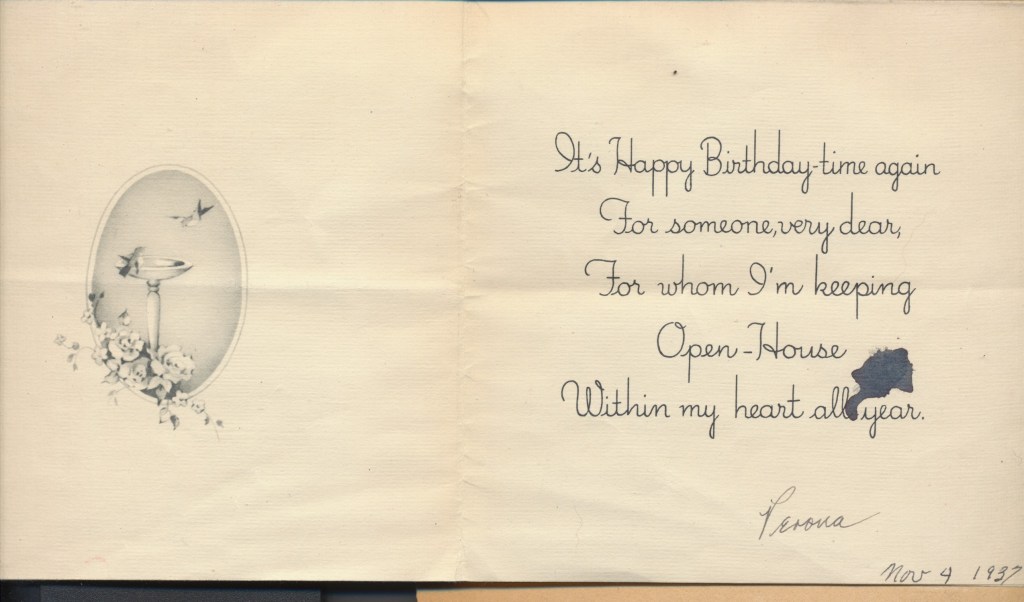 It's Happy Birthday-time again
For someone, very dear,
For whom I'm keeping
Open-House
Within my heart all year.
Verona
Nov 4 1937